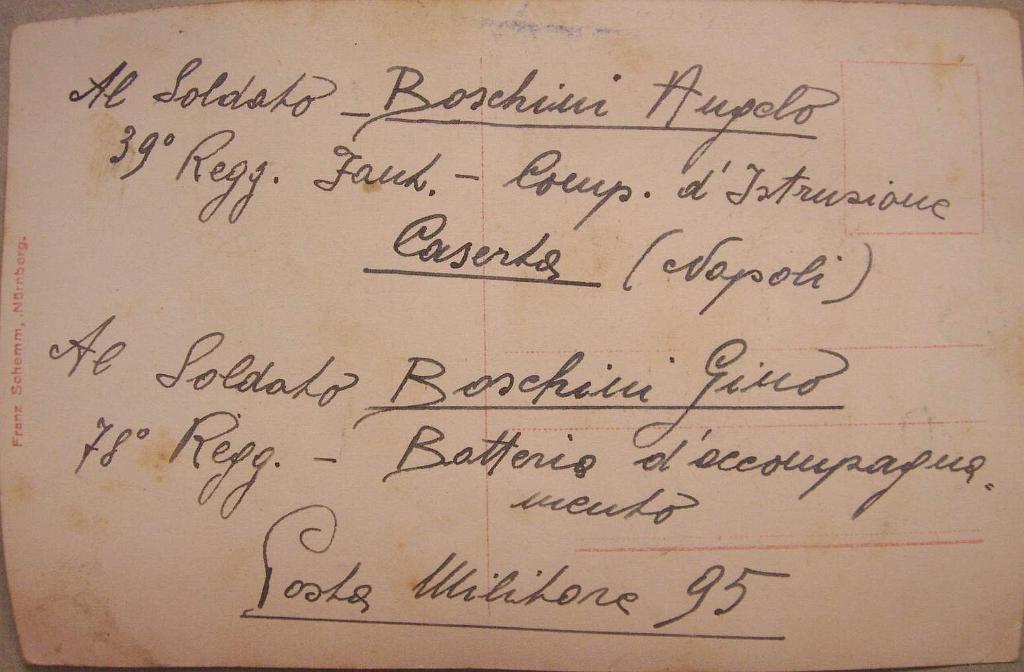 Al Soldato - Boschini Angelo
39° Regg. Fant. - Comp. d'Istrusione
Caserta (Napoli)
Al Soldato Boschini Gino
78° Regg. - Batteria d'accompagna-
mento
Posta Militare 95
Franz Schemm, Nürnberg.